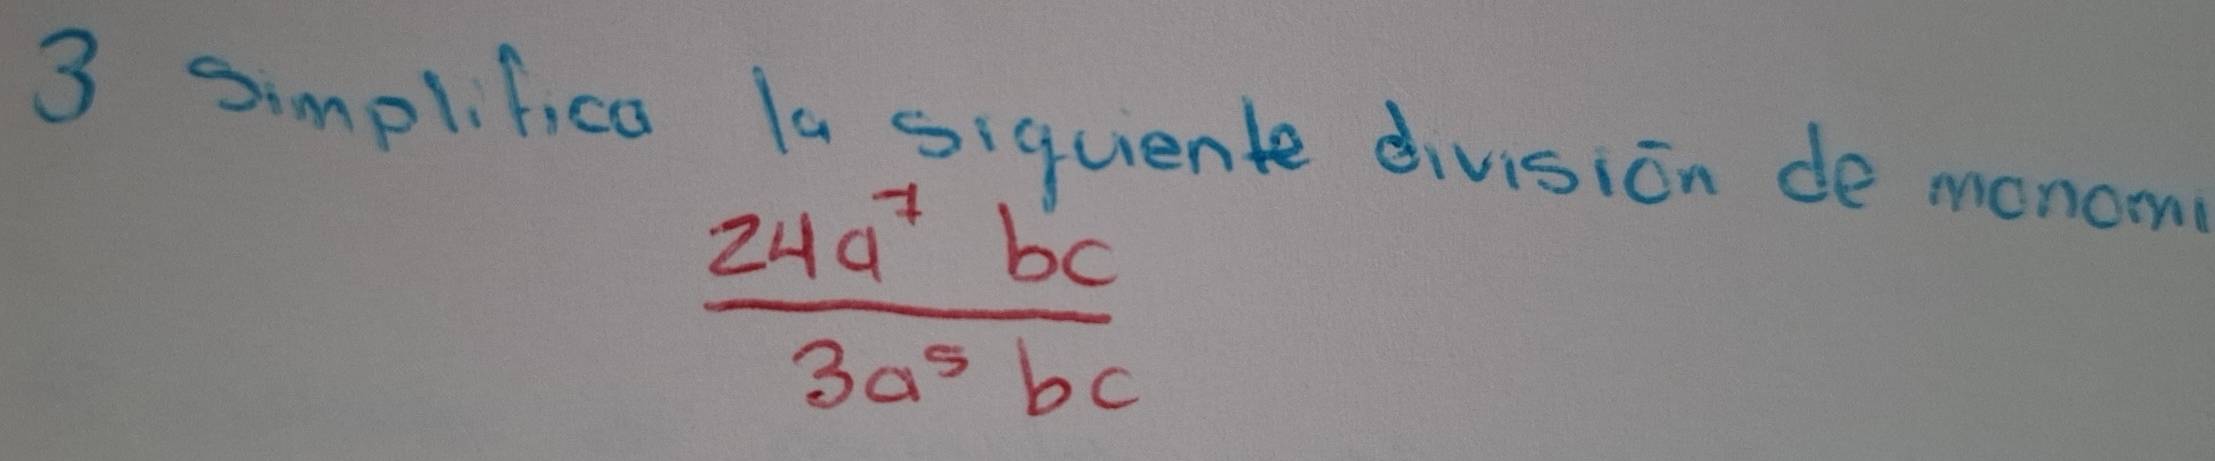 3 Simplifica la siguiente división de monomi
24a⁷ bc
3a⁵ bc